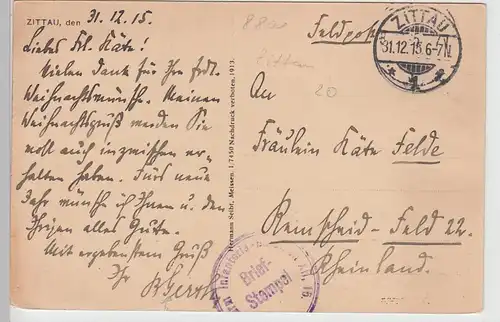 ZITTAU, den 31.12.15.
Liebes Frl. Käte!
Vielen Dank für Ihre frdl.
Weihnachtswünsche. Meinen
Weihnachtsgruß werden Sie
wohl auch inzwischen er-
halten haben. Fürs neue
Jahr wünsche ich Ihnen u. den
Ihrigen alles Gute.
Mit ergebenstem Gruß
Ihr
Hermann Seibt, Meissen. 1,7450 Nachdruck verboten. 1913.
Zittau
20
Feldpost
ZITTAU
31.12.15.6-7N.
An
Fräulein Käte Felde
Remscheid-Feld 22.
Rheinland.
Brief-
Stempel